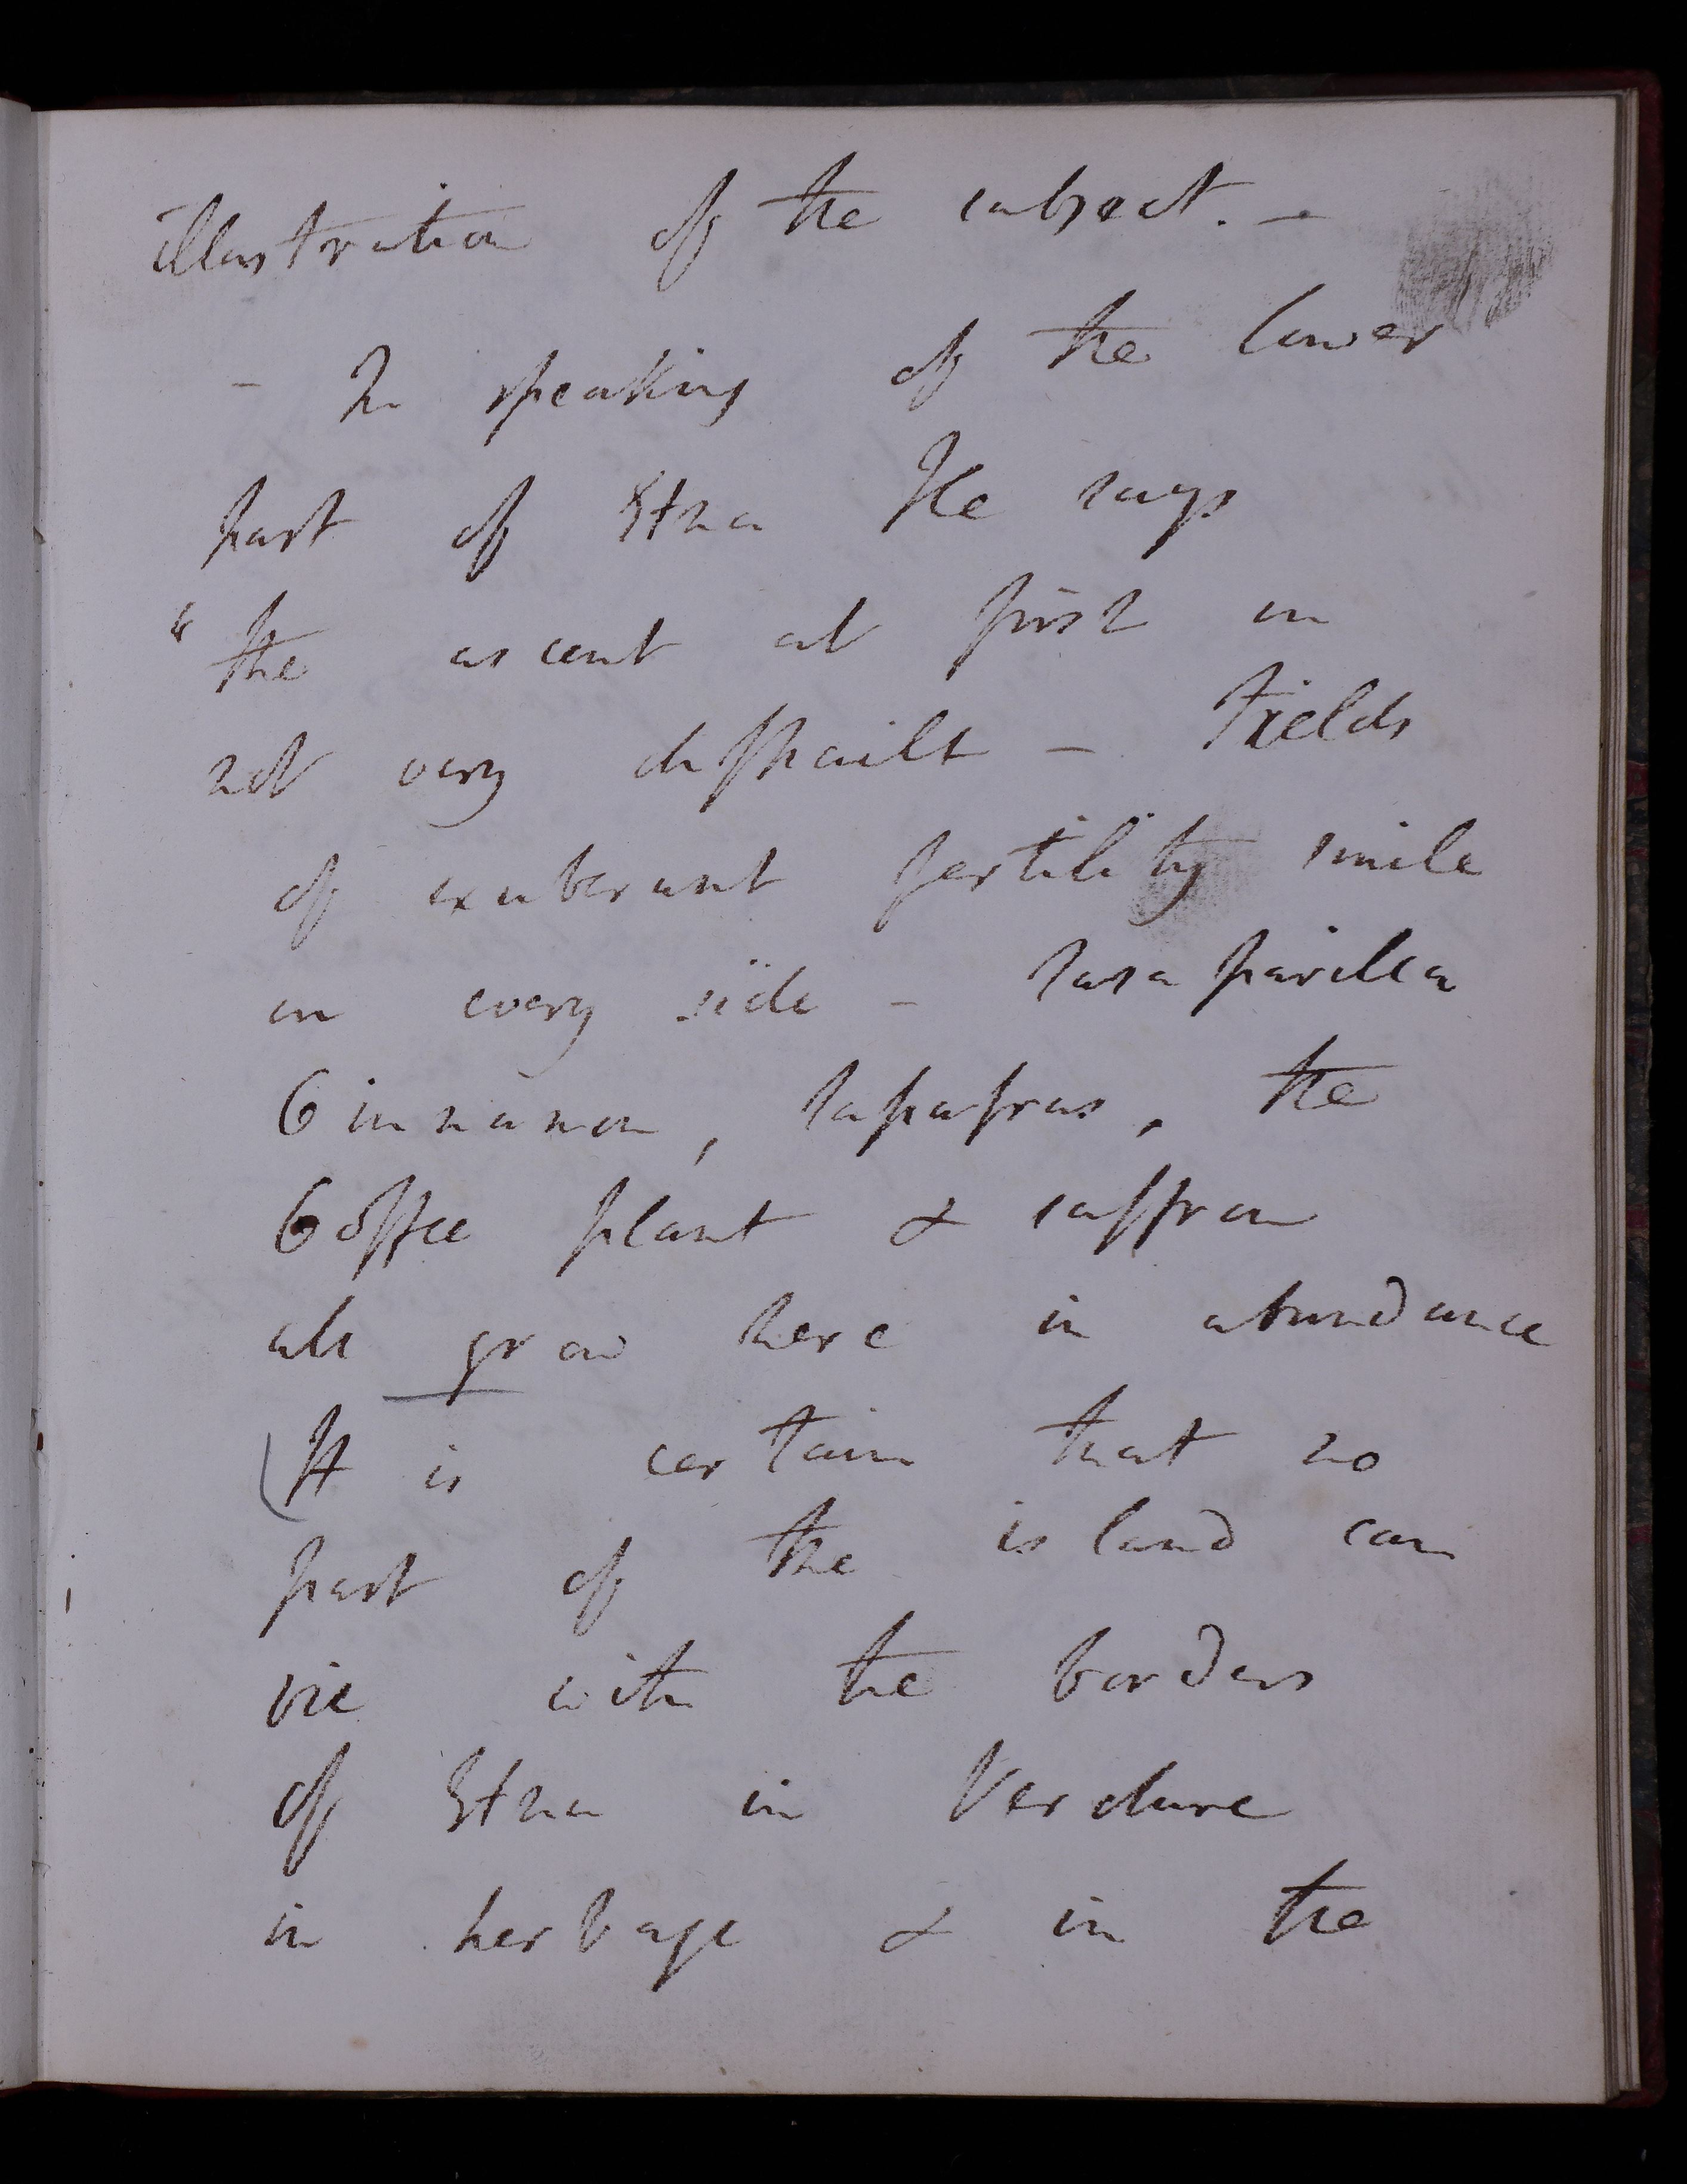 illustration of the subject. –
– In speaking of the lower
part of Etna He says
"the ascent at first in
not very difficult – Fields
of exuberant fertility smile
on every side – Sasaparilla
Cinnamon, Sassafras, the
Coffee plant & saffron
all grow here in abundance
(It is certain that no
part of the island can
vie with the borders
of Etna in Verdure
in herbage & in the